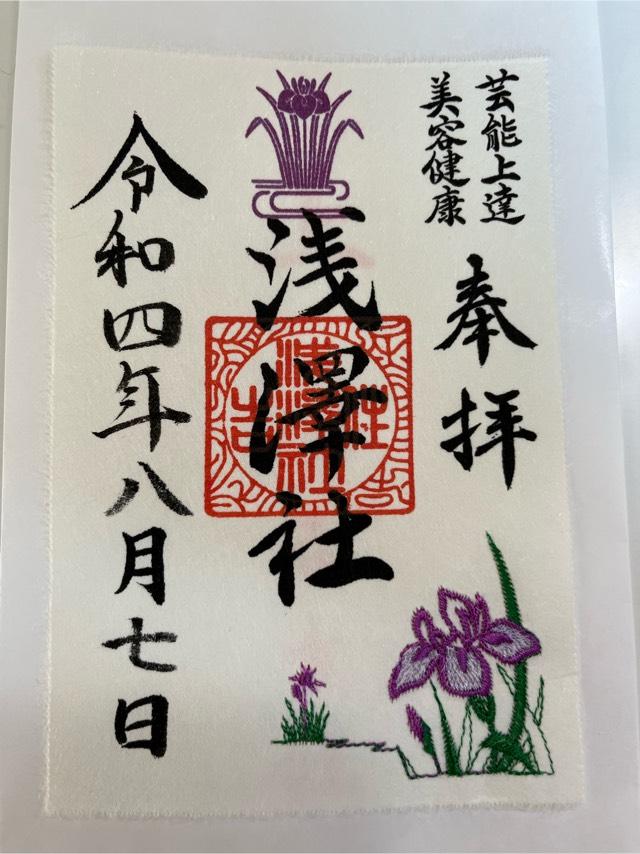 芸能上達
美容健康
奉拝
浅澤社
令和四年八月七日